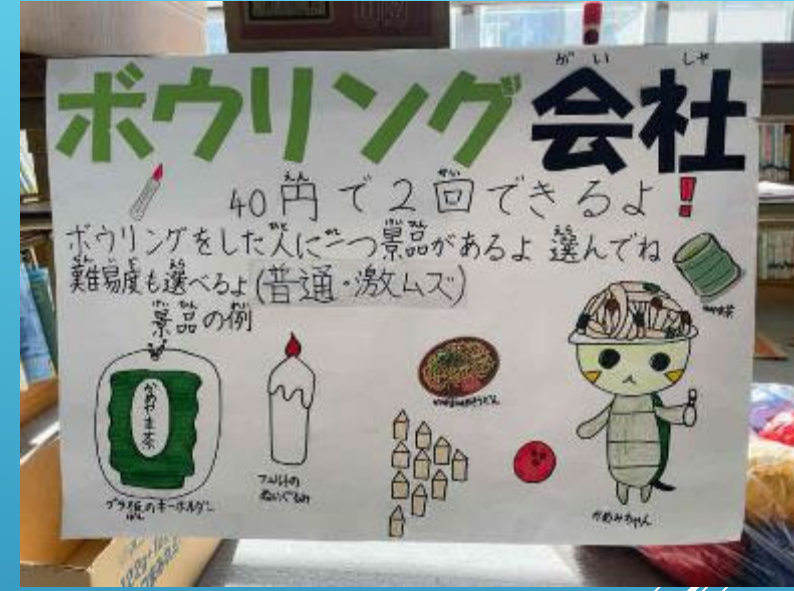 ボウリング会社
がい しゃ
40円で2回できるよ!
えん かい
ボウリングをした人に二つ景品があるよ 選んでね
難易度も選べるよ(普通・激ムズ)
景品の例
かめやま茶
プラ板のキーホルダー
ばん
フェルトの
ぬいぐるみ
かめみちゃん